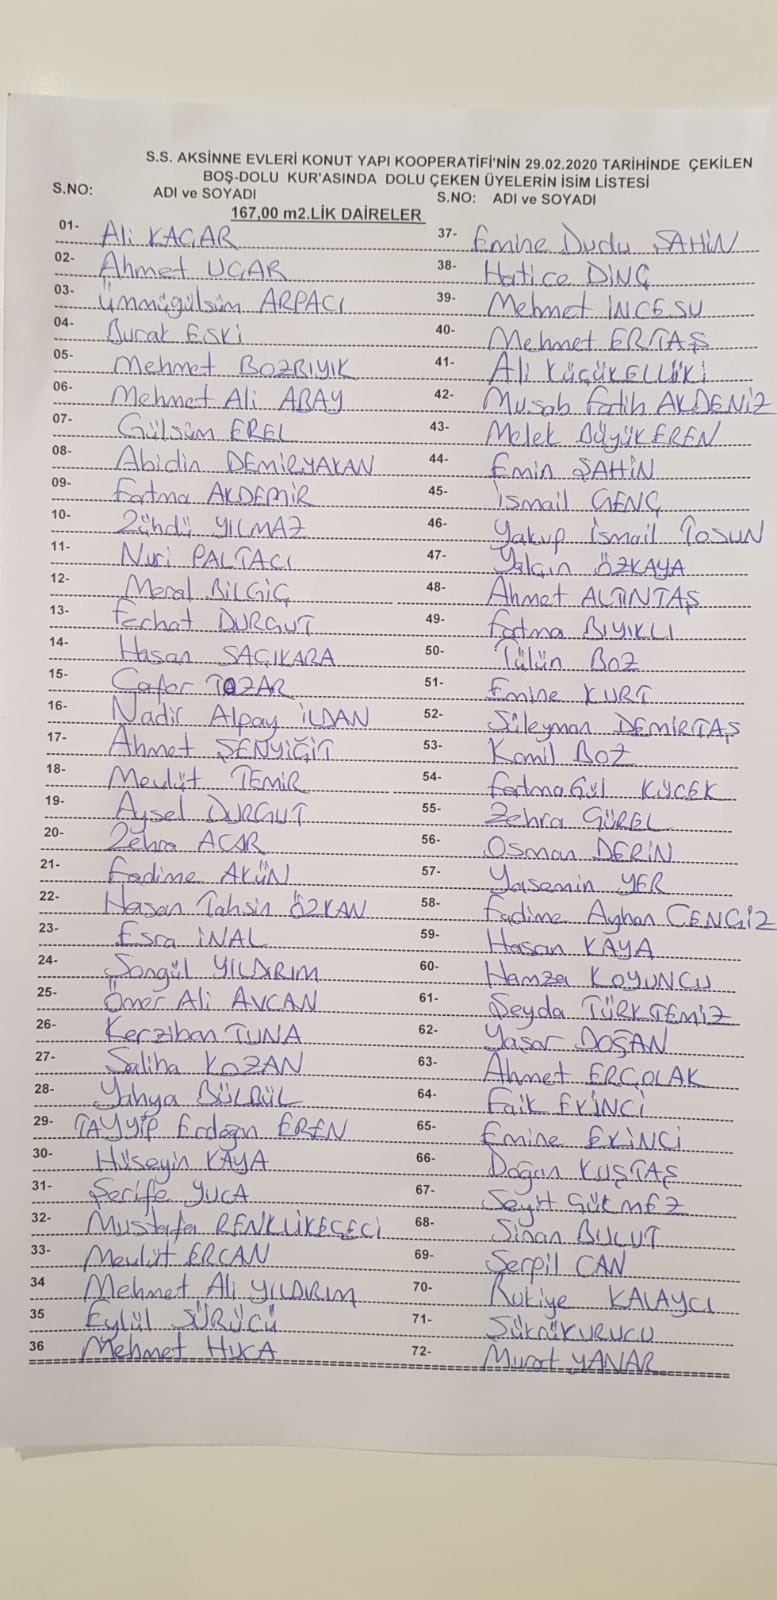 S.S. AKSİNNE EVLERİ KONUT YAPI KOOPERATİFİ'NİN 29.02.2020 TARİHİNDE ÇEKİLEN
BOŞ-DOLU KUR'ASINDA DOLU ÇEKEN ÜYELERİN İSİM LİSTESİ
S.NO: ADI ve SOYADI S.NO: ADI ve SOYADI
167,00 m2.LİK DAİRELER
01- Ali KAÇAR
02- Ahmet UÇAR
03- Ümmügülsüm ARPACI
04- Burak ESKİ
05- Mehmet BOZBIYIK
06- Mehmet Ali ABAY
07- Gülsüm EREL
08- Abidin DEMİRYAKAN
09- Fatma AKDEMİR
10- Zühdü YILMAZ
11- Nuri PALTACI
12- Meral BİLGİÇ
13- Ferhat DURGUT
14- Hasan SAÇIKARA
15- Cafer TOZAR
16- Nadir Alpay İLDAN
17- Ahmet ŞENYİĞİT
18- Mevlüt TEMİR
19- Aysel DURGUT
20- Zehra ACAR
21- Fadime AKÜN
22- Hasan Tahsin ÖZKAN
23- Esra İNAL
24- Songül YILDIRIM
25- Ömer Ali AVCAN
26- Kerziban TUNA
27- Saliha KOZAN
28- Yahya BÜLBÜL
29- TAYYİP Erdoğan EREN
30- Hüseyin KAYA
31- Şerife YUCA
32- Mustafa RENKLİKEÇECİ
33- Mevlüt ERCAN
34 Mehmet Ali YILDIRIM
35 Eylül SÜRÜCÜ
36 Mehmet HUCA
37- Emine Dudu ŞAHİN
38- Hatice DİNÇ
39- Mehmet İNCESU
40- Mehmet ERTAŞ
41- Ali KÜÇÜKELLİKİ
42- Musab Fatih AKDENİZ
43- Melek BÜYÜKEREN
44- Emin ŞAHİN
45- İsmail GENÇ
46- Yakup İsmail TOSUN
47- Yalçın ÖZKAYA
48- Ahmet ALTINTAŞ
49- Fatma BIYIKLI
50- Tülün BOZ
51- Emine KURT
52- Süleyman DEMİRTAŞ
53- Kamil BOZ
54- FatmaGül KÜÇEK
55- Zehra GÜREL
56- Osman DERİN
57- Yasemin YER
58- Fadime Ayhan CENGİZ
59- Hasan KAYA
60- Hamza KOYUNCU
61- Şeyda TÜRKTEMİZ
62- Yaşar DOĞAN
63- Ahmet ERÇOLAK
64- Faik EKİNCİ
65- Emine EKİNCİ
66- Doğan KUŞTAŞ
67- Seyit GÖKMEZ
68- Sinan BULUT
69- Serpil CAN
70- Rukiye KALAYCI
71- ŞükrüKURUCU
72- Murat YANAR